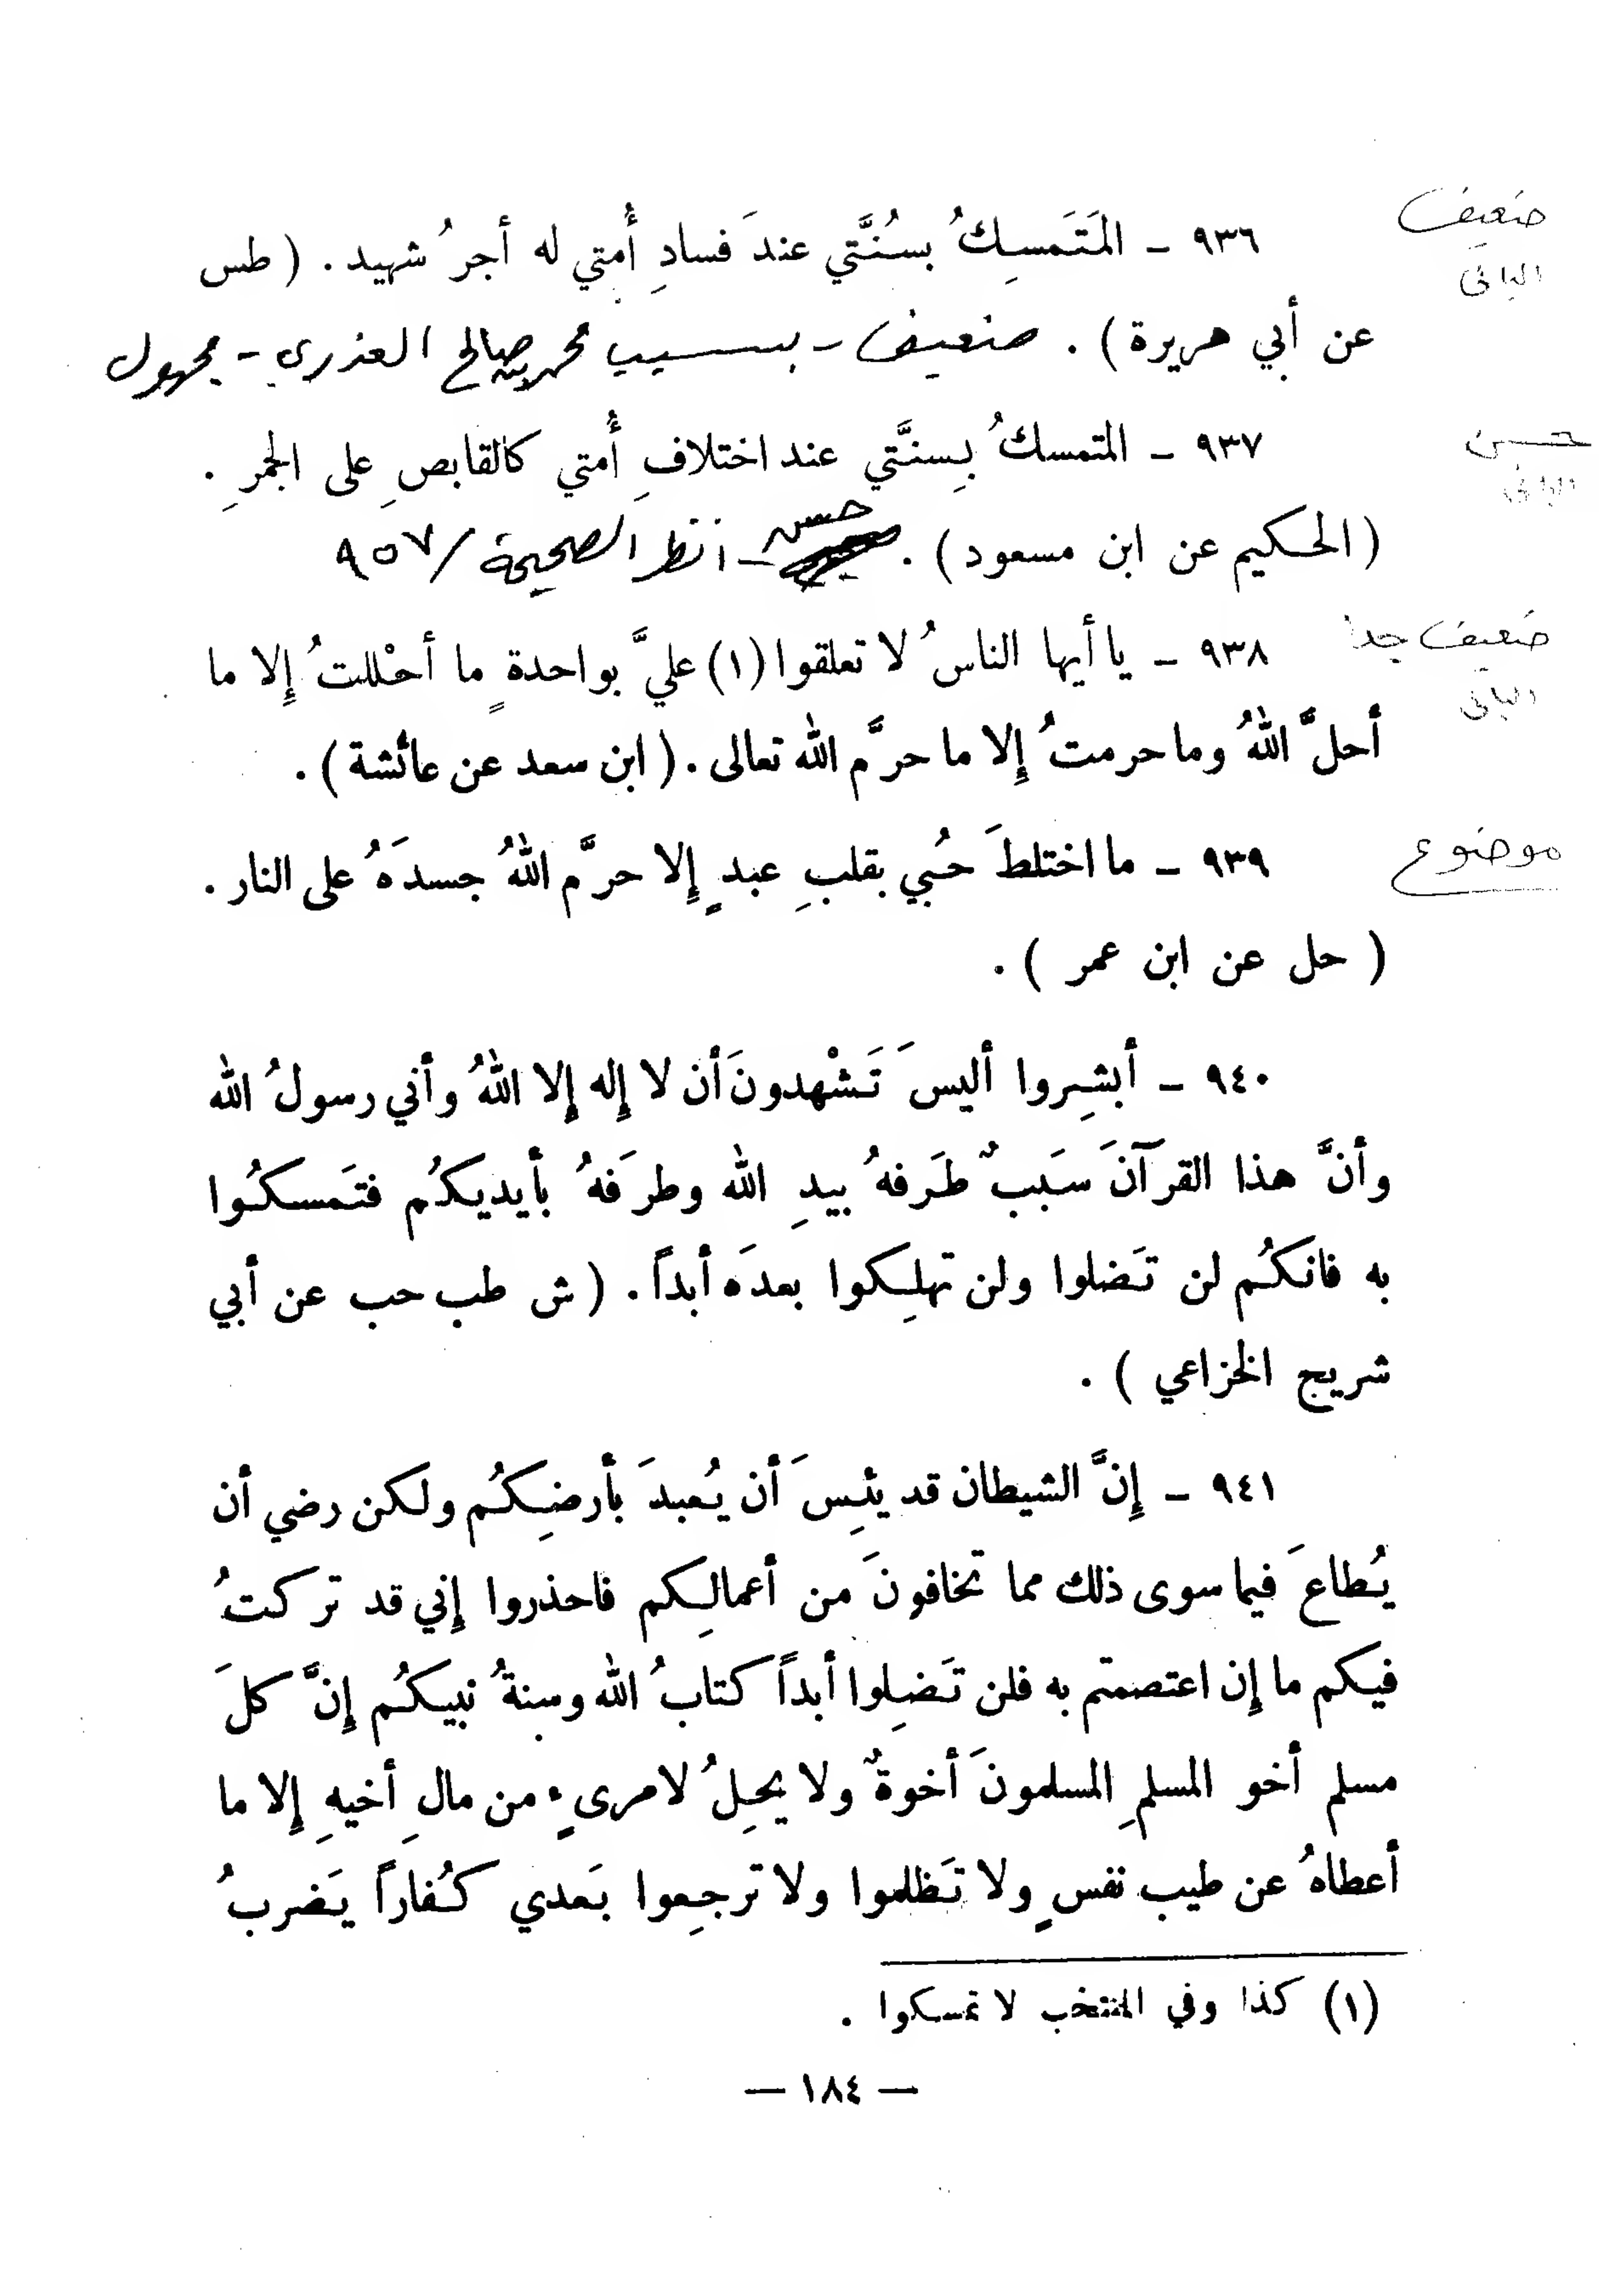 ضعيف
الباني
٩٣٦ - المَتَمسِكُ بسُنَّتي عندَ فسادِ أُمتي له أجرُ شهيد . ( طس
عن أبي هريرة ) . ضعيف - بسبب محمد بن صالح العذري - مجهول
حسن
الباني
٩٣٧ - المتمسكُ بِسنَّتي عند اختلافِ أُمتي كالقابصِ على الجمرِ .
( الحكيم عن ابن مسعود ) . حسن - انظر الصحيحة / ٩٥٧
ضعيف جدا
الباني
٩٣٨ - يا أيها الناسُ لا تعلقوا (١) عليَّ بواحدةٍ ما أحْللتُ إِلا ما
أحلَّ اللهُ وما حرمتُ إِلا ما حرَّم الله تعالى . ( ابن سعد عن عائشة ) .
موضوع
٩٣٩ - ما اختلطَ حُبي بقلبِ عبدٍ إِلا حرَّم اللهُ جسدَهُ على النار .
( حل عن ابن عمر ) .
٩٤٠ - أبشِروا أليسَ تَشْهدونَ أن لا إِله إِلا اللهُ وأني رسولُ الله
وأنَّ هذا القرآنَ سَببٌ طَرفهُ بيدِ الله وطرَفهُ بأيديكُم فتَمسكُوا
به فانكُم لن تَضلوا ولن تهلِكوا بعدَه أبداً . ( ش طب حب عن أبي
شريج الخزاعي ) .
٩٤١ - إِنَّ الشيطان قد يئِسَ أن يُعبدَ بأرضِكُم ولكن رضي أن
يُطاعَ فيما سوى ذلك مما تخافونَ من أعمالِكم فاحذروا إِني قد تركتُ
فيكم ما إِن اعتصمتم به فلن تَضِلوا أبداً كتابُ الله وسنةُ نبيكُم إِنَّ كلَ
مسلم أخو المسلمِ المسلمونَ أخوةٌ ولا يحِلُ لامرىءٍ من مالِ أخيهِ إِلا ما
أعطاهُ عن طيب نفسٍ ولا تَظلموا ولا ترجِعوا بَعدي كُفاراً يَضربُ
(١) كذا وفي المنتخب لا تمسكوا .
— ١٨٤ —